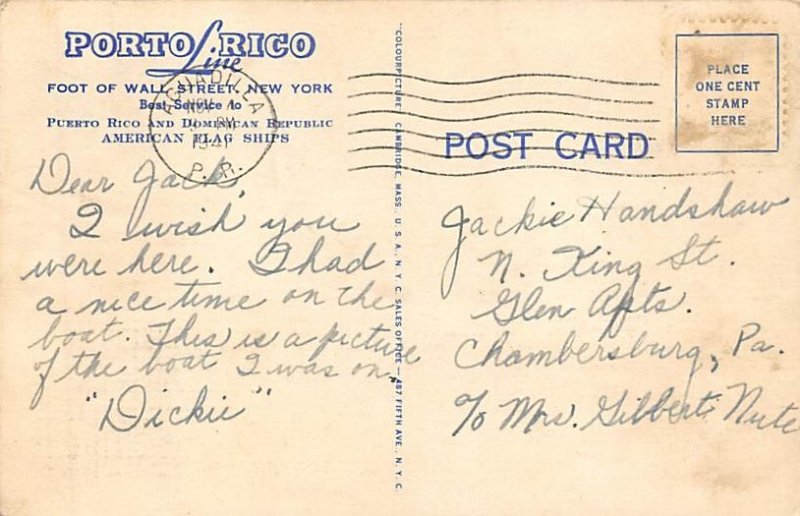 PORTO Line RICO
FOOT OF WALL STREET, NEW YORK
Best Service to
PUERTO RICO AND DOMINICAN REPUBLIC
AMERICAN FLAG SHIPS
AGUADILLA
1941
P. R.
Dear Jack,
I wish you
were here. I had
a nice time on the
boat. This is a picture
of the boat I was on.
"Dickie"
"COLOURPICTURE" CAMBRIDGE, MASS. U. S. A., N. Y. C. SALES OFFICE—487 FIFTH AVE., N. Y. C.
POST CARD
PLACE
ONE CENT
STAMP
HERE
Jackie Handshaw
N. King St.
Glen Apts.
Chambersburg, Pa.
% Mrs. Gilbert Nute